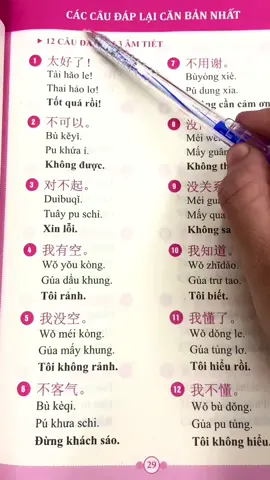 CÁC CÂU ĐÁP LẠI CĂN BẢN NHẤT
12 CÂU ÂM TIẾT
1 太好了！
Tài hǎo le!
Thai háo lơ!
Tốt quá rồi!
2 不可以。
Bù kěyǐ.
Pu khứa ỉ.
Không được.
3 对不起。
Duìbuqǐ.
Tuây pu schỉ.
Xin lỗi.
4 我有空。
Wǒ yǒu kòng.
Gủa dẩu khung.
Tôi rảnh.
5 我没空。
Wǒ méi kòng.
Gủa mấy khung.
Tôi không rảnh.
6 不客气。
Bù kèqi.
Pú khưa schi.
Đừng khách sáo.
7 不用谢。
Bùyòng xiè.
Pú dung xia.
cần cảm ơn
8
9 没关系
Méi gu
Mấy qua
Không sa
10 我知道。
Wǒ zhīdào.
Gủa trư tao.
Tôi biết.
11 我懂了。
Wǒ dǒng le.
Gủa tủng lơ.
Tôi hiểu rồi.
12 我不懂。
Wǒ bù dǒng.
Gủa pu tủng.
Tôi không hiểu.
29